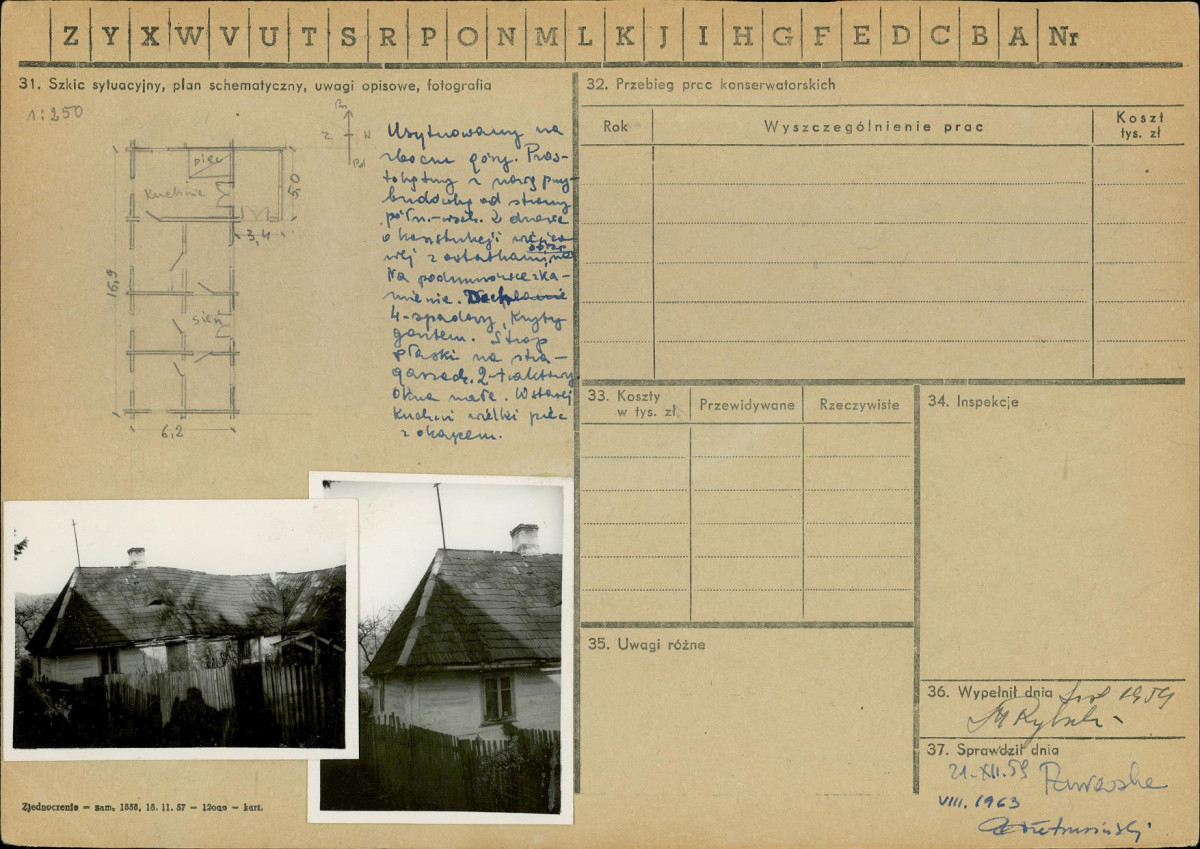 Z Y X W V U T S R P O N M L K J I H G F E D C B A Nr
31. Szkic sytuacyjny, plan schematyczny, uwagi opisowe, fotografia
1:250
Pn
Z W
Płd
piec
kuchnia
5,50
3,4
16,9
sień
6,2
Usytuowany na
zboczu góry. Pros-
tokątny z nową przy-
budówką od strony
półn.-wsch. Z drzewa
o konstrukcji
z ostatkami
Na podmurówce z ka-
mienia.
4-spadowy, kryty
gontem. Strop
płaski na stra-
garzach. 2-traktowy
Okna małe. W starej
kuchni wielki piec
z okapem.
32. Przebieg prac konserwatorskich
Rok
Wyszczególnienie prac
Koszt
tys. zł
33. Koszty
w tys. zł.
Przewidywane
Rzeczywiste
34. Inspekcje
35. Uwagi różne
36. Wypełnił dnia 1959
37. Sprawdził dnia
21-XII.59
VIII. 1963
Zjednoczenie — zam. 1858, 18.11.57 — 12000 — kart.